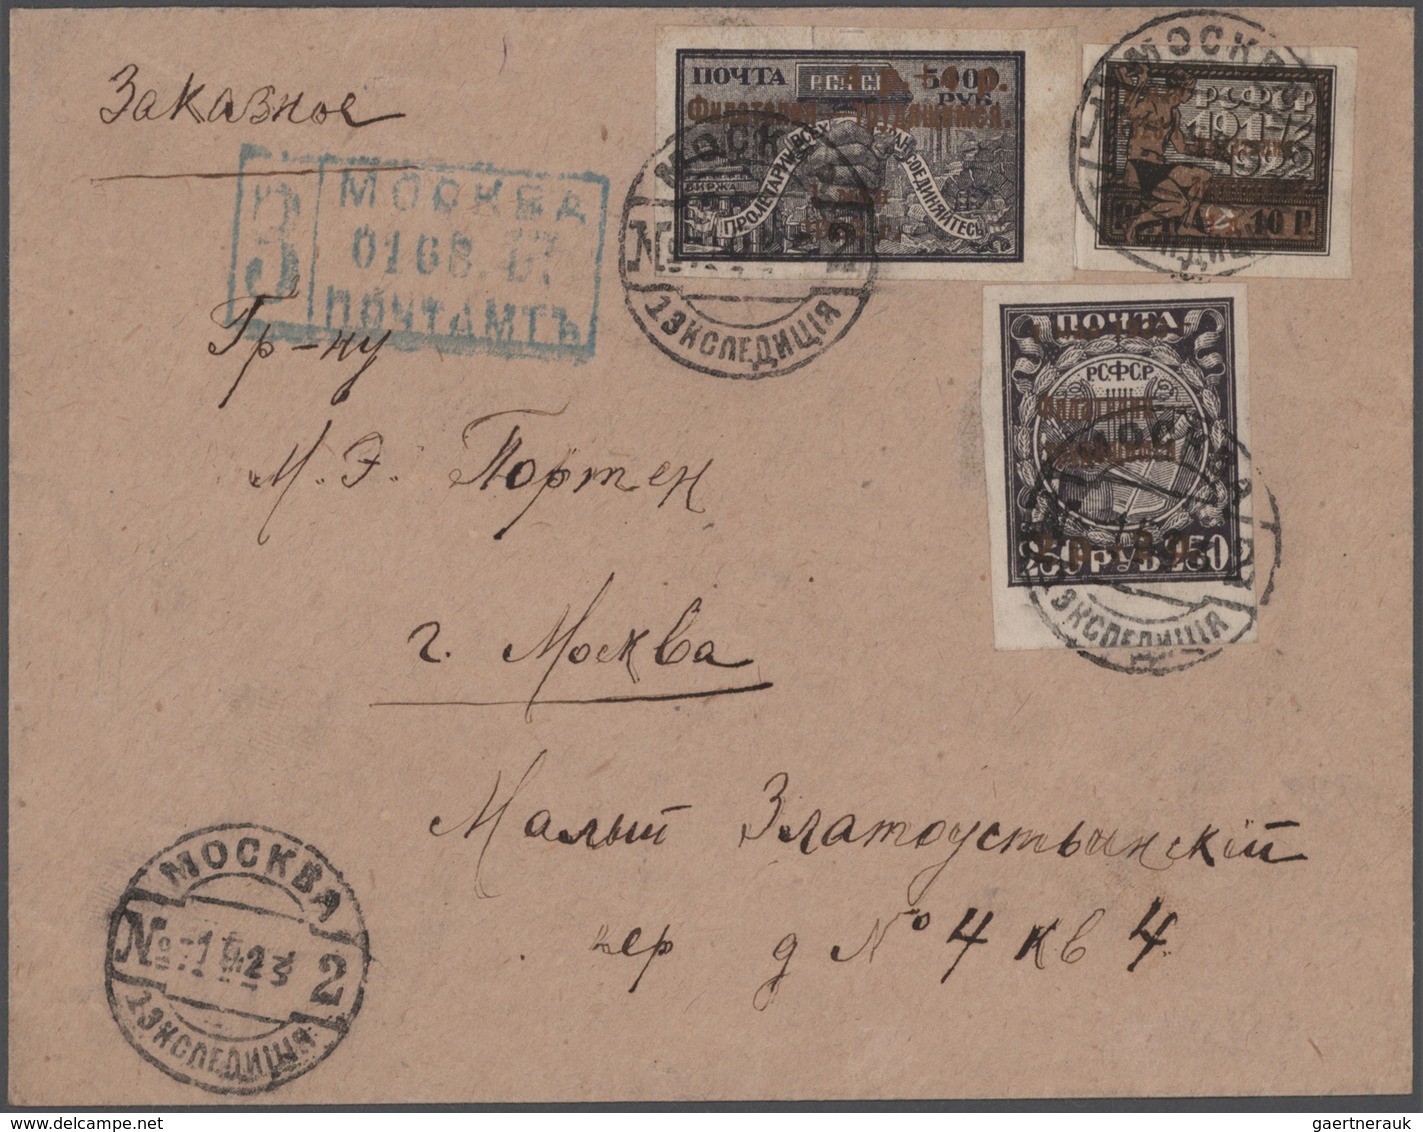 Заказное
З
МОСКВА
ПОЧТАМТЪ
ПОЧТА РСФСР РУБ.
4 р. + 4 р.
Филателия — трудящимся.
БИРЖА
ПРОЛЕТАРИИ ВСЕХ СТРАН СОЕДИНЯЙТЕСЬ
МОСКВА
№ 2
1 ЭКСПЕДИЦІЯ
МОСКВА
РСФСР
1917
1922
10 Р.
Гр-ну
М. Э. Портен
г. Москва
ПОЧТА
РСФСР
250 РУБ 250
МОСКВА
1 ЭКСПЕДИЦІЯ
Малый Златоустьинскій
пер д № 4 кв 4
МОСКВА
№ -1 5 23 2
1 ЭКСПЕДИЦІЯ
gaertnerauk